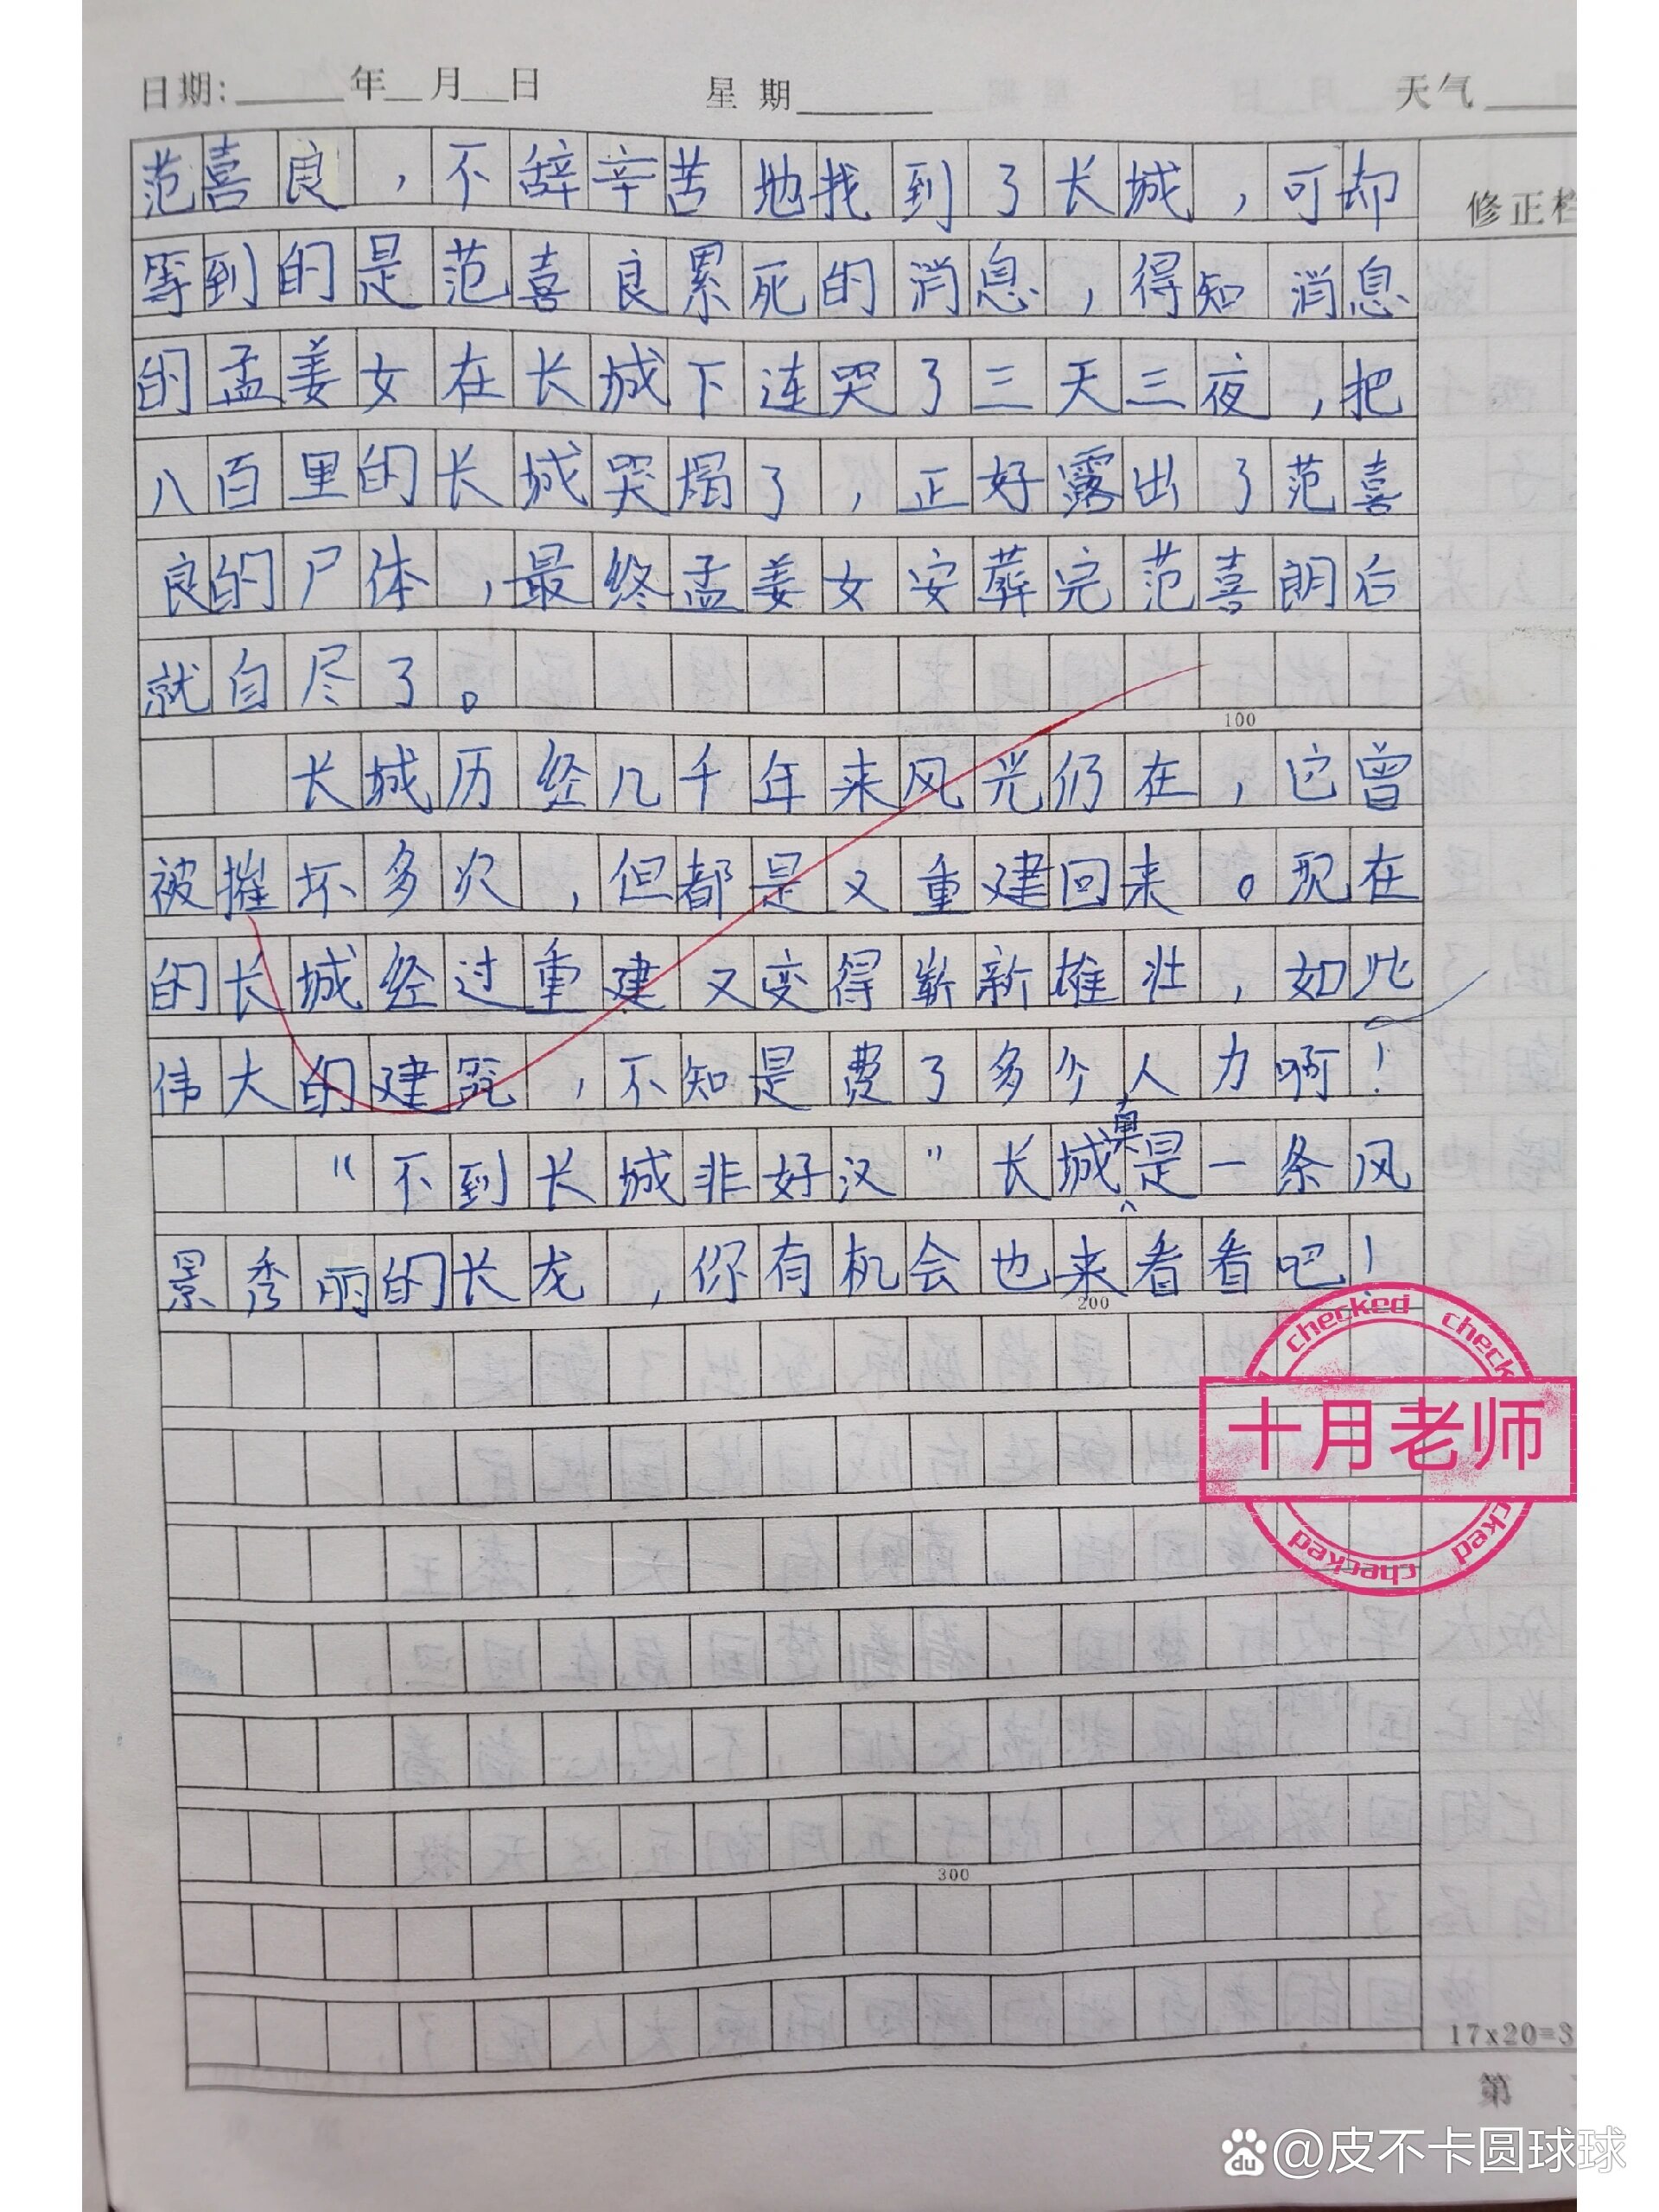 日期:______年__月__日 星期______ 天气
范喜良，不辞辛苦地找到了长城，可却
修正栏
等到的是范喜良累死的消息，得知消息
的孟姜女在长城下连哭了三天三夜，把
八百里的长城哭塌了，正好露出了范喜
良的尸体，最终孟姜女安葬完范喜朗后
就自尽了。
100
长城历经几千年来风光仍在，它曾
被摧坏多次，但都是又重建回来。现在
的长城经过重建又变得崭新雄壮，如此
伟大的建筑，不知是费了多少人力啊！
“不到长城非好汉”长城真是一条风
景秀丽的长龙，你有机会也来看看吧！
200
checked checked
十月老师
checked checked
300
17x20=3
第
du @皮不卡圆球球